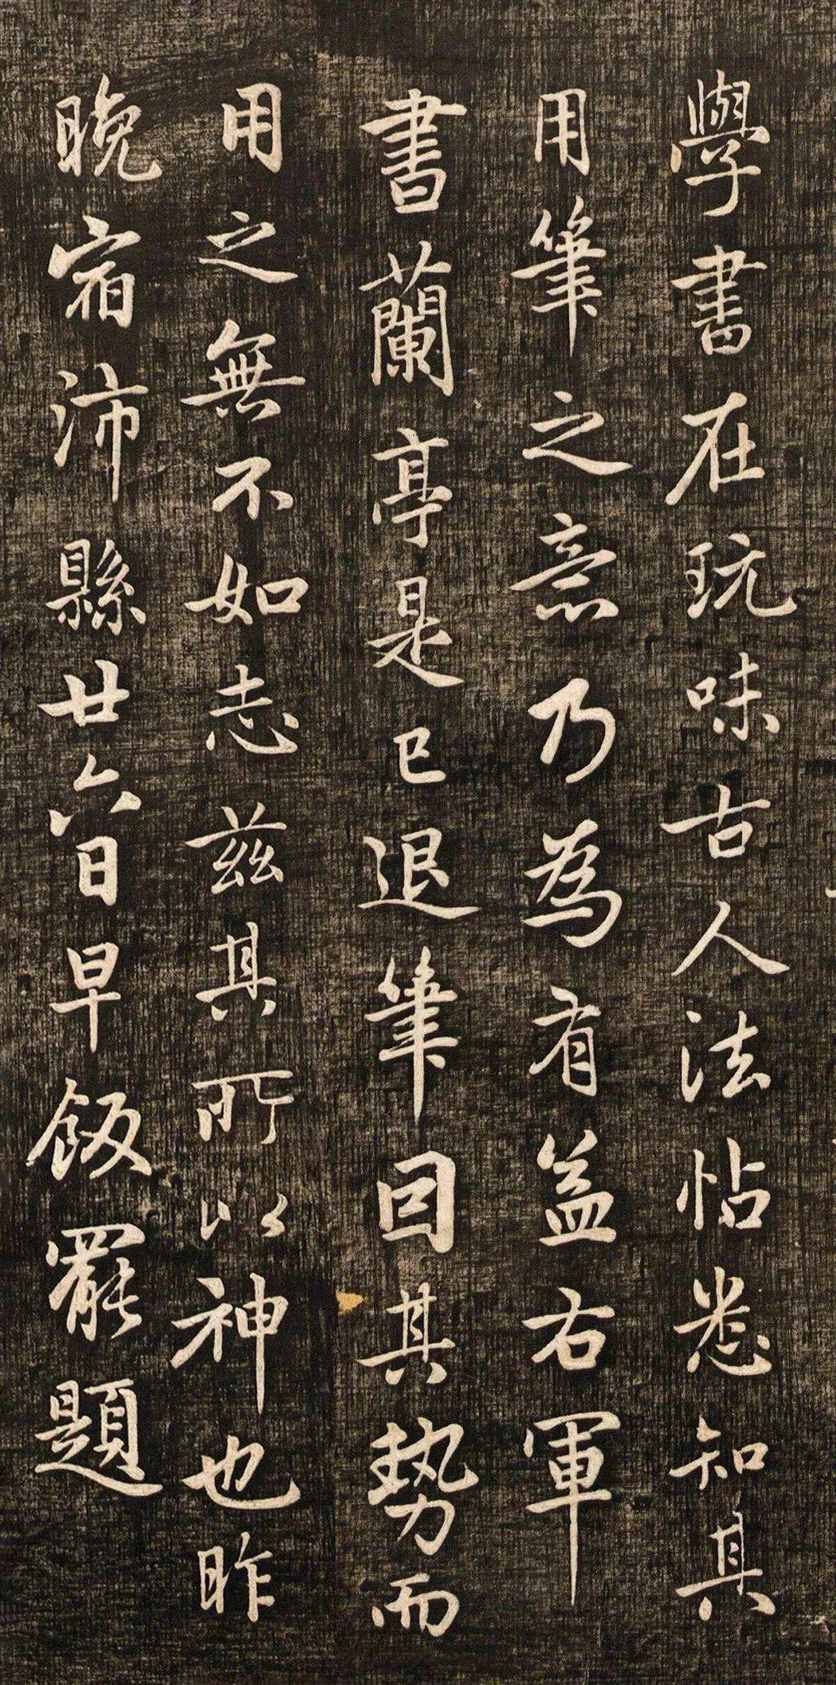 學書在玩味古人法帖悉知其
用筆之意乃為有益右軍
書蘭亭是已退筆因其勢而
用之無不如志茲其所以神也昨
晚宿沛縣廿六日早飯罷題